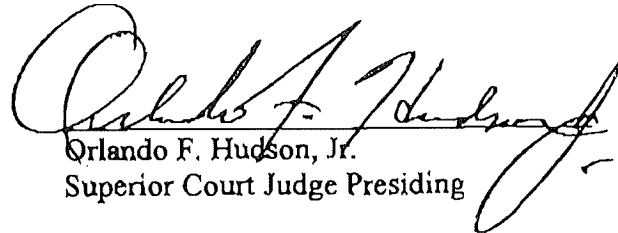 Orlando F. Hudson Jr.
Orlando F. Hudson, Jr.
Superior Court Judge Presiding